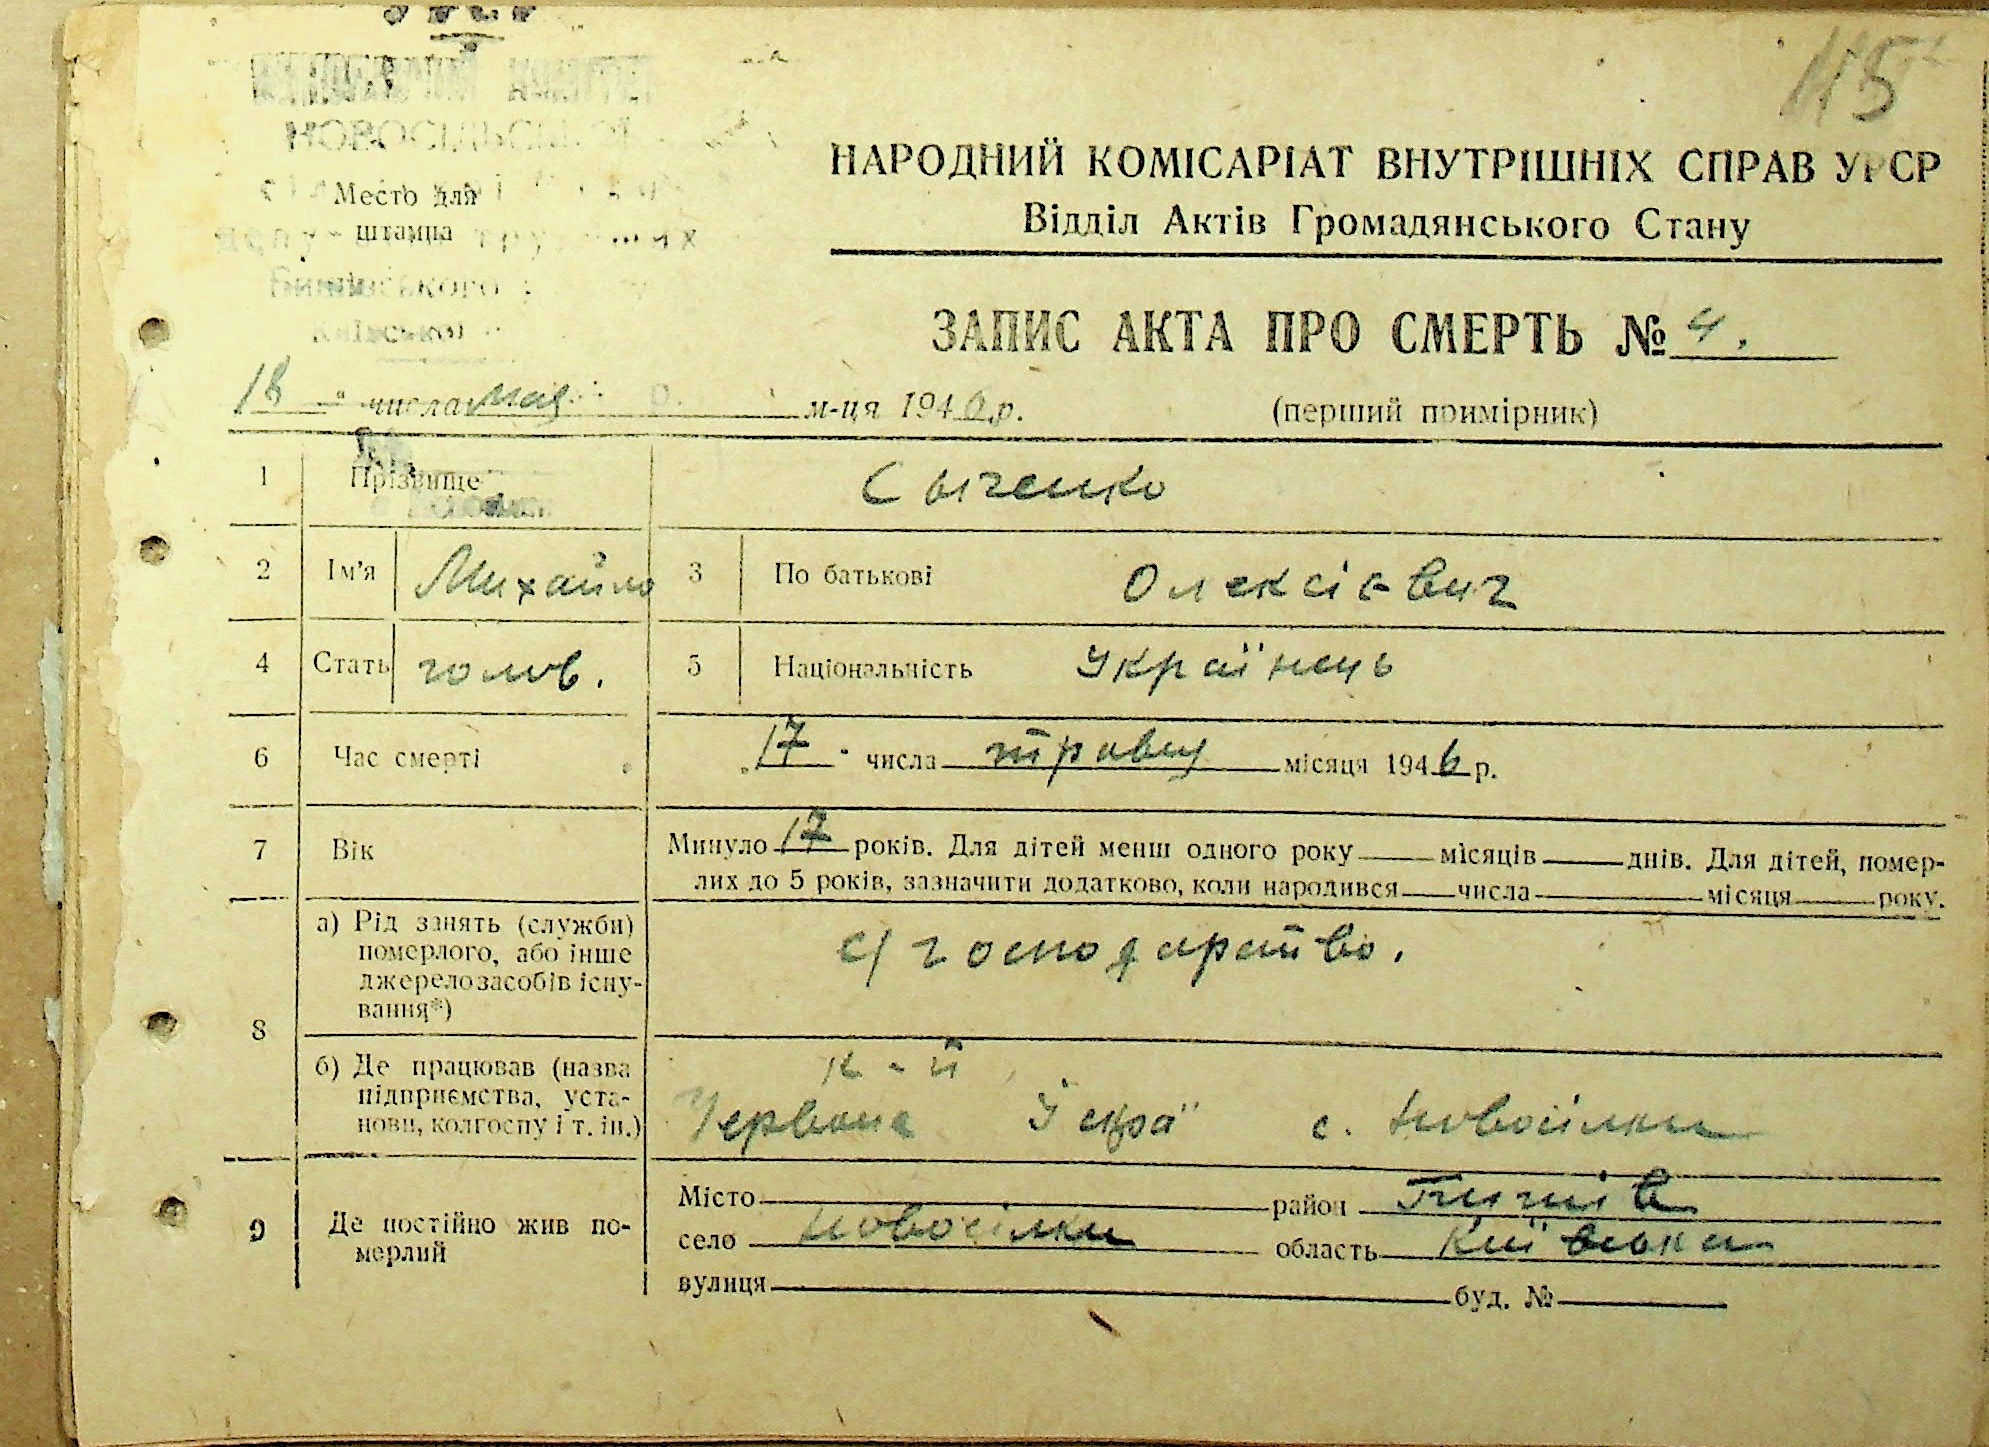 45
НОВОСІЛЬСЬКОЇ
Место для
штампа
Київської
НАРОДНИЙ КОМІСАРІАТ ВНУТРІШНІХ СПРАВ УРСР
Відділ Актів Громадянського Стану
ЗАПИС АКТА ПРО СМЕРТЬ № 4.
18 числа мая м-ця 1946 р. (перший примірник)
1 Прізвище Сыченко
2 Ім'я Михайло 3 По батькові Олексієвич
4 Стать голов. 5 Національність Українець
6 Час смерті 17 числа травня місяця 1946 р.
7 Вік Минуло 17 років. Для дітей менш одного року місяців днів. Для дітей, помер-
лих до 5 років, зазначити додатково, коли народився числа місяця року.
8 а) Рід занять (служби)
померлого, або інше
джерело засобів існу-
вання*)
с/господарство.
б) Де працював (назва
підприємства, уста-
нови, колгоспу і т. ін.)
к-п
Червона Іскра с. Новосілки
9 Де постійно жив по-
мерлий
Місто район
село Новосілки область Київська
вулиця буд. №